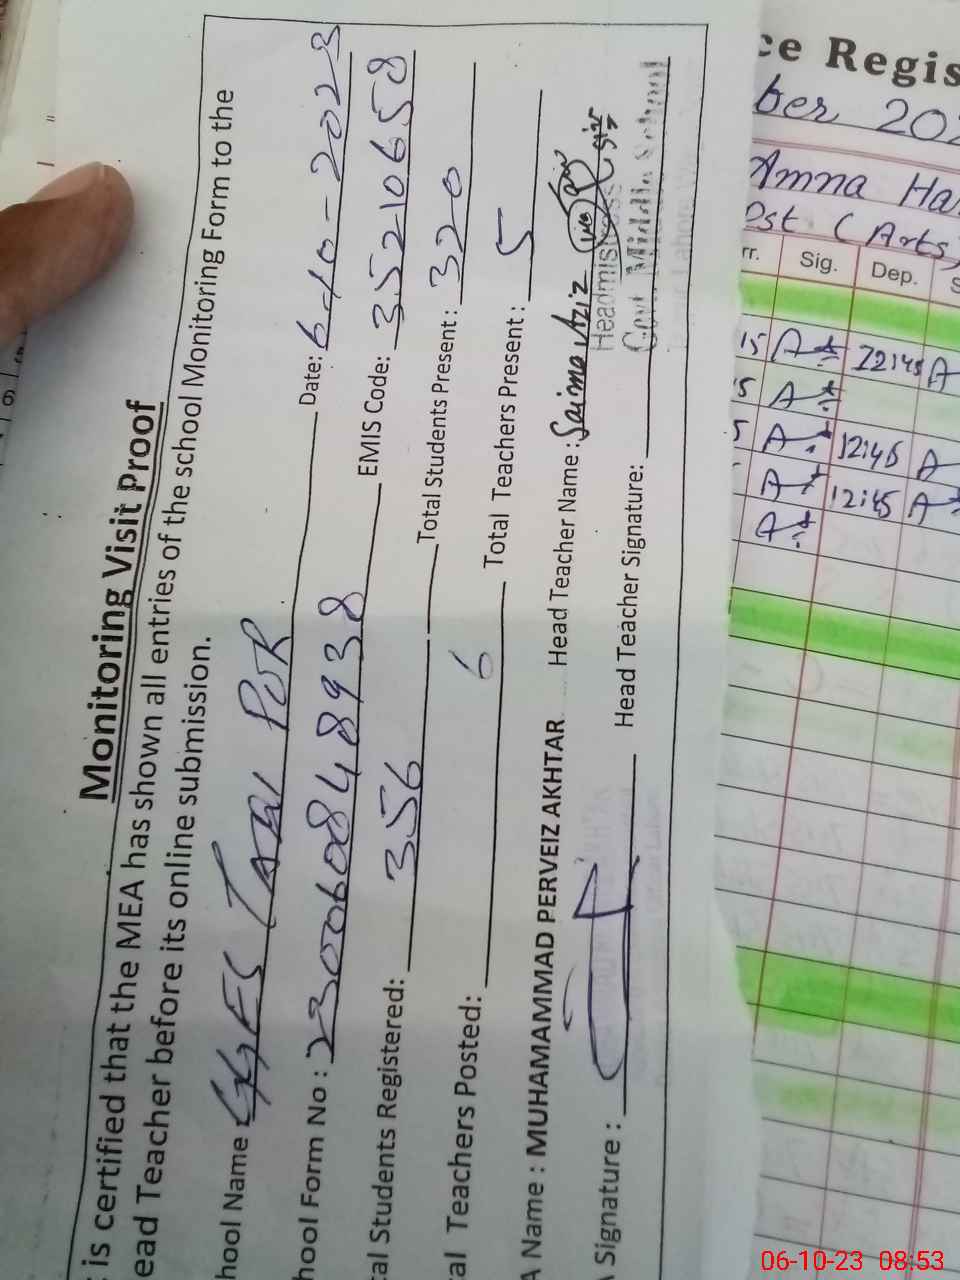 Monitoring Visit Proof
is certified that the MEA has shown all entries of the school Monitoring Form to the
ead Teacher before its online submission.
hool Name GGES Date: 6-10-2023
hool Form No : 23006084 8938 EMIS Code: 35210658
tal Students Registered: 356 Total Students Present: 320
tal Teachers Posted: 6 Total Teachers Present: 5
A Name : MUHAMAMMAD PERVEIZ AKHTAR Head Teacher Name : Saima Aziz
A Signature : Head Teacher Signature:
Headmistress
Govt. Middle School
ce Regis
ber 202
Amna Ha
Est (Arts)
rr. Sig. Dep. S
15 A 12:45 A
5 A
5 A 12:45 A
A 12:45 A
A
06-10-23 08:53